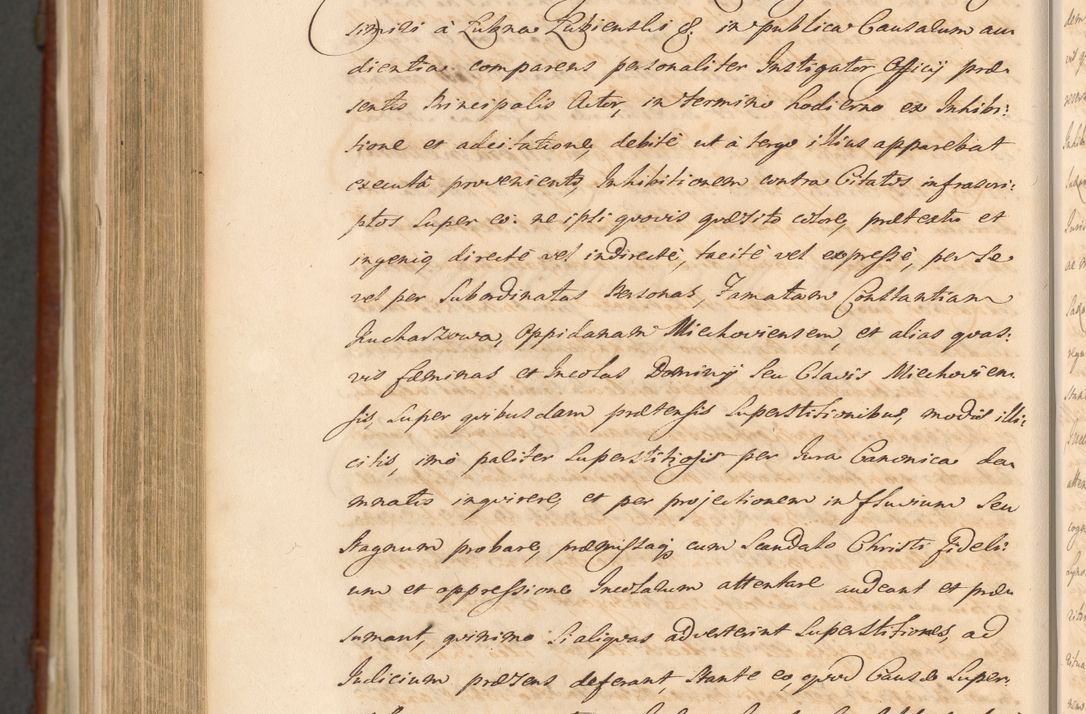 simiri à Lubna Lubienski &. in publica Causarum au
dientia comparens personaliter Instigator Officij præ
sentis Principalis Actor, in termino hodierno ex Inhibi:
tione et adcitatione, debitè ut à tergo illius apparebat
executa proveniente, Inhibitionem contra Citatos infrascri:
ptos super eo: ne ipsi quovis quæsito colore, prætextu et
ingenio, directè vel indirectè, tacitè vel expressè, per se
vel per subordinatas Personas, Famatam Constantiam
Kucharzowa, Oppidanam Miechoviensem, et alias quas:
vis fœminas et Incolas Dominij seu Clavis Miechovien
sis, super quibusdam prætensis superstitionibus, modis illi:
citis, imò paliter superstitiosis per Jura Canonica da
mnatis inquirere, et per projectionem in fluvium seu
stagnum probare, præmissaq cum scandalo Christi fideli:
um et oppressione Incolarum attentare audeant et præ
sumant, quinimo si aliquas adverterint superstitiones, ad
Judicium præsens deferant, stante eo, quod Causæ super